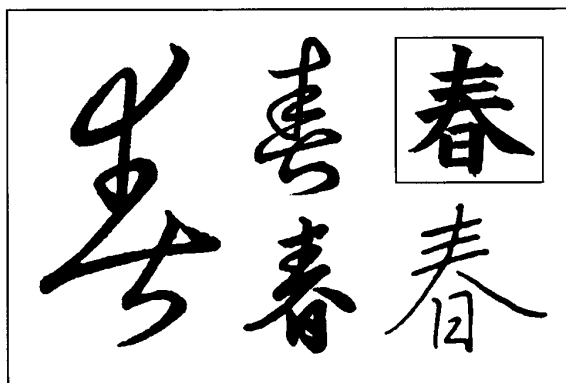 春
春
春
春
春